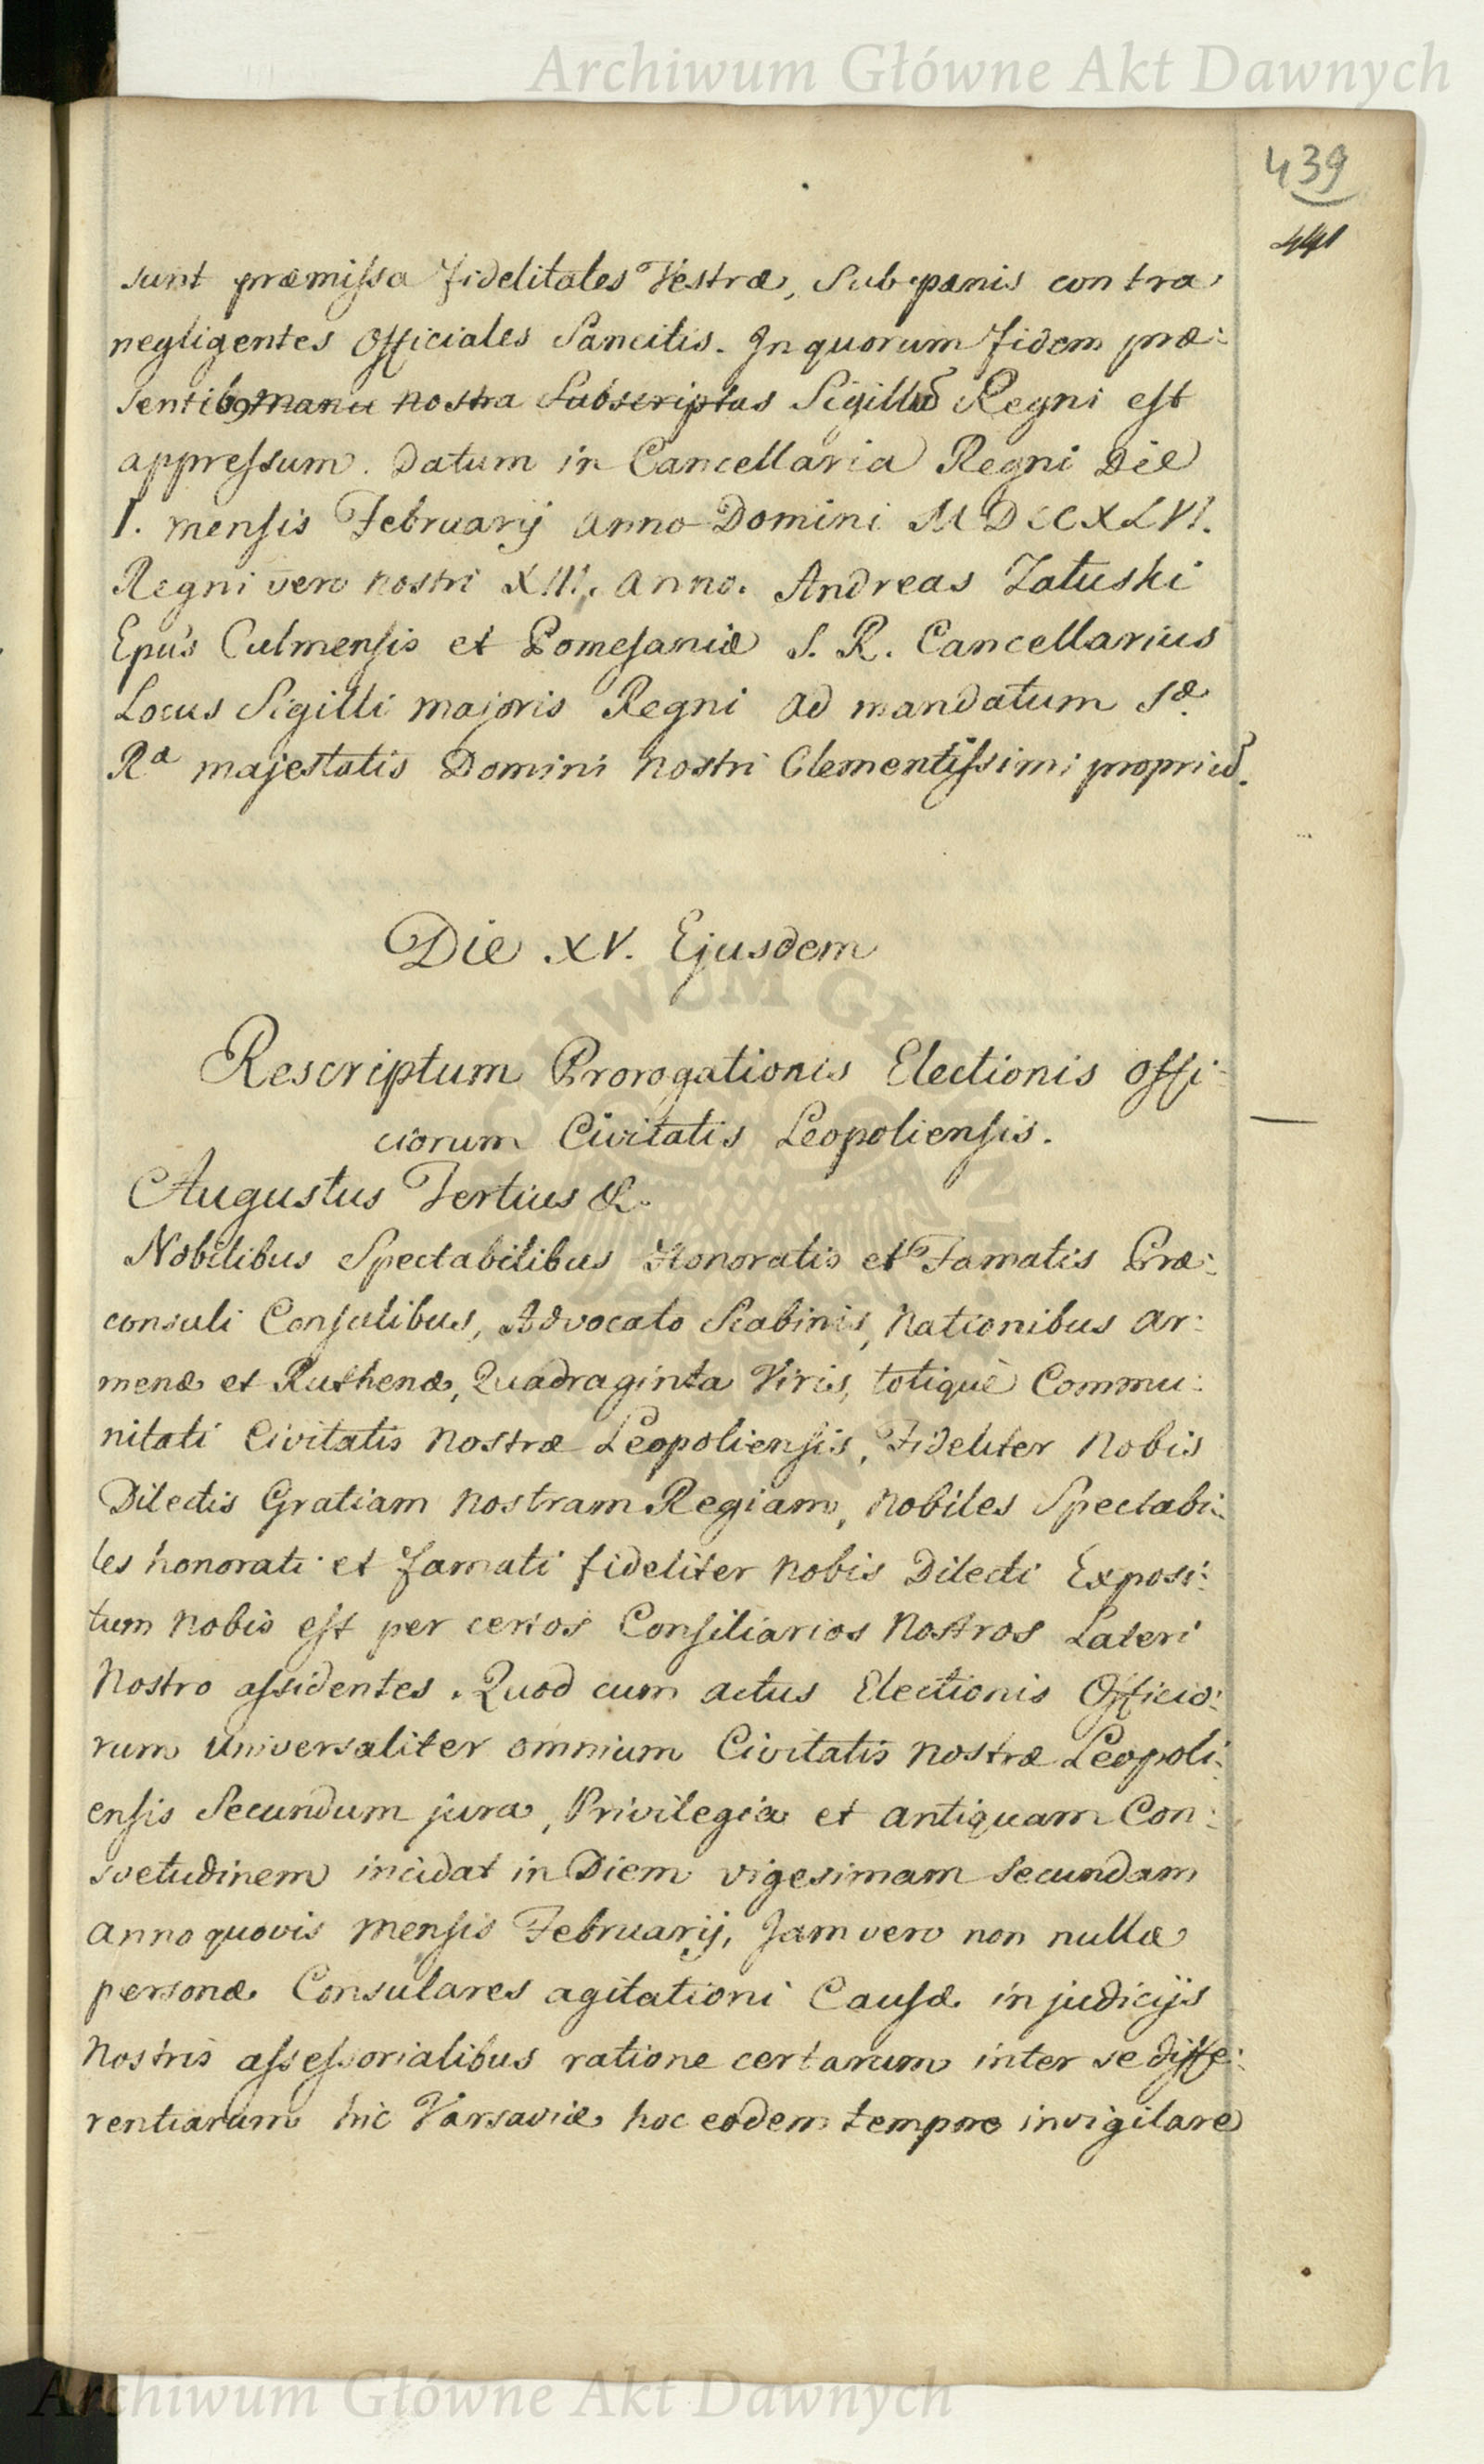 Archiwum Główne Akt Dawnych
439
441
sunt præmissa fidelitates Vestræ, Sub pænis contra
negligentes Officiales Sancitis. In quorum fidem præ:
sentib9 manu nostra Subscriptas Sigillũ Regni est
appressum. Datum in Cancellaria Regni Die
I. mensis Februarij anno Domini MDCCXLVI.
Regni vero nostri XIII. anno. Andreas Załuski
Epus Culmensis et Pomesaniæ S. R. Cancellarius
Locus Sigilli majoris Regni ad mandatum Sæ
Ræ majestatis Domini nostri Clementissimi propriũ.
Die XV. Ejusdem
Rescriptum Prorogationis Electionis offi:
ciorum Civitatis Leopoliensis.
Augustus Tertius &.
Nobilibus Spectabilibus Honoratis et Famatis Præ:
consuli Consulibus, Advocato Scabinis, Nationibus ar:
menæ et Ruthenæ, Quadraginta Viris, totique Commu:
nitati Civitatis nostræ Leopoliensis, Fideliter Nobis
Dilectis Gratiam nostram Regiam, Nobiles Spectabi:
les honorati et famati fideliter nobis Dilecti Exposi:
tum nobis est per certos Consiliarios Nostros Lateri
Nostro assidentes. Quod cum actus Electionis Officio:
rum universaliter omnium Civitatis nostræ Leopoli:
ensis Secundum jura, Privilegia et antiquam Con:
svetudinem incidat in Diem vigesimam Secundam
anno quovis mensis Februarij, Jam vero non nullæ
personæ Consulares agitationi Causæ in judicijs
Nostris assessorialibus ratione certarum inter se diffe:
rentiarum hic Varsaviæ hoc eodem tempore invigilare
Archiwum Główne Akt Dawnych